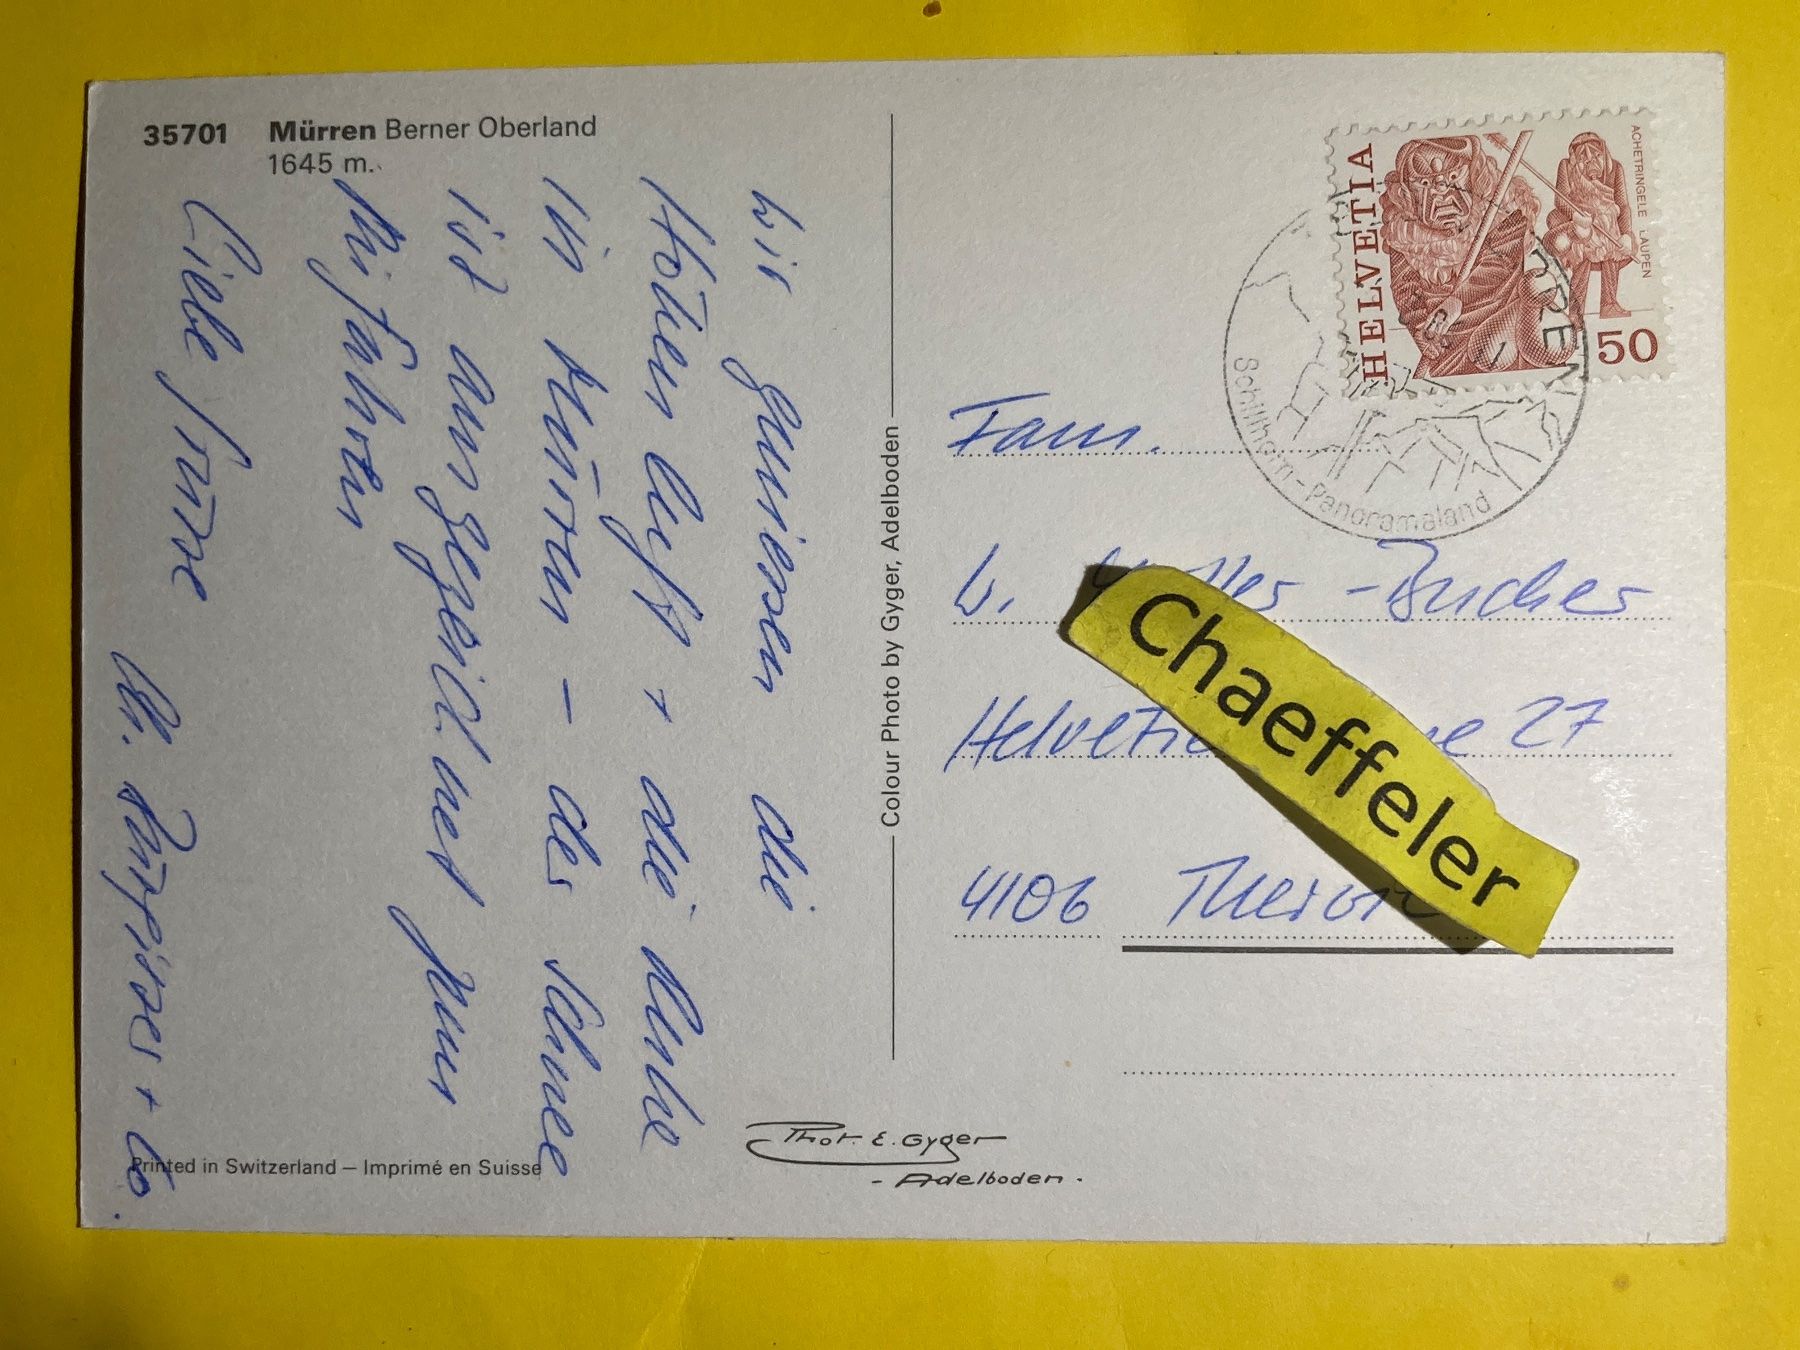 35701 Mürren Berner Oberland
1645 m.
Wir geniessen die
Höhenluft + die Ruhe
in Mürren – der Schnee
ist ausgezeichnet zum
Skifahren
Liebe Grüsse
+
Colour Photo by Gyger, Adelboden
Printed in Switzerland – Imprimé en Suisse
Phot. E. Gyger
- Adelboden.
HELVETIA
ACHETRINGELE LAUPEN
50
Schilthorn - Panoramaland
Fam.
W. -Bucher
27
4106
Chaeffeler